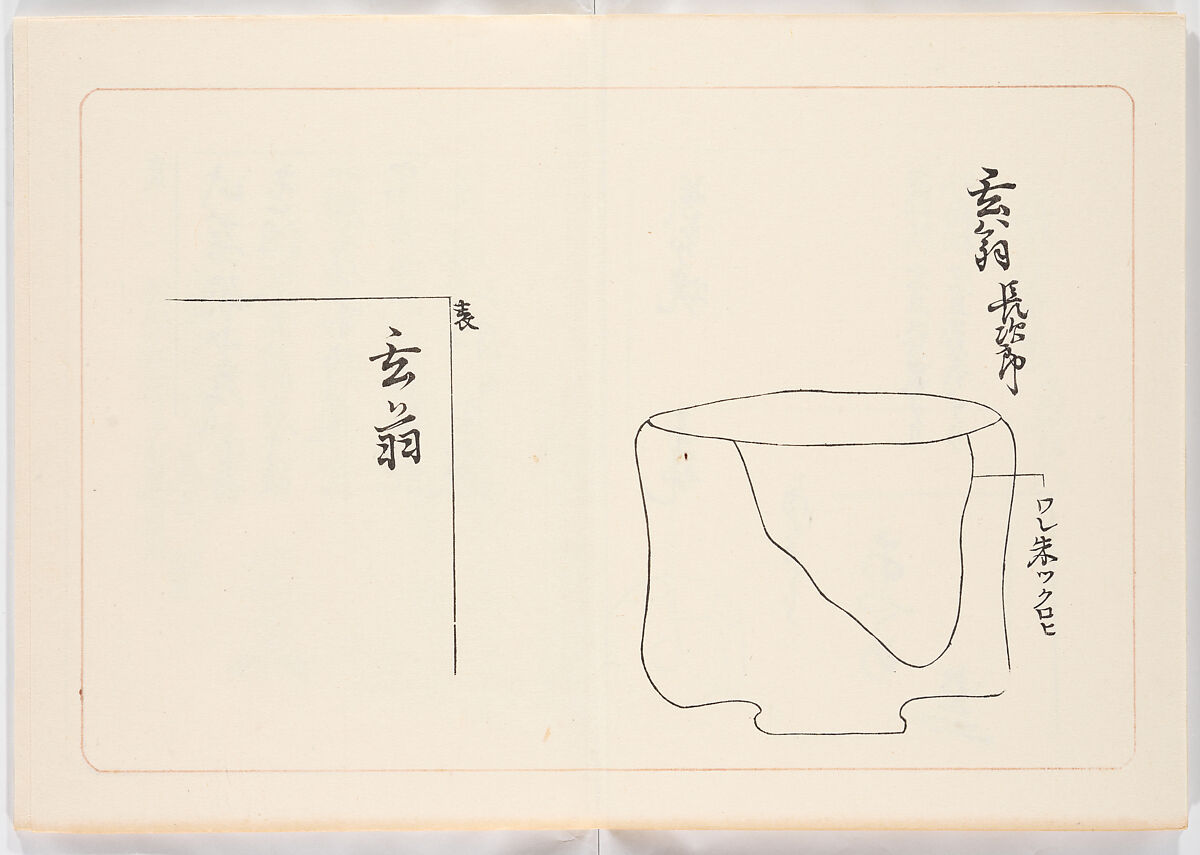 玄翁 長次郎
ワレ朱ツクロヒ
表
玄翁